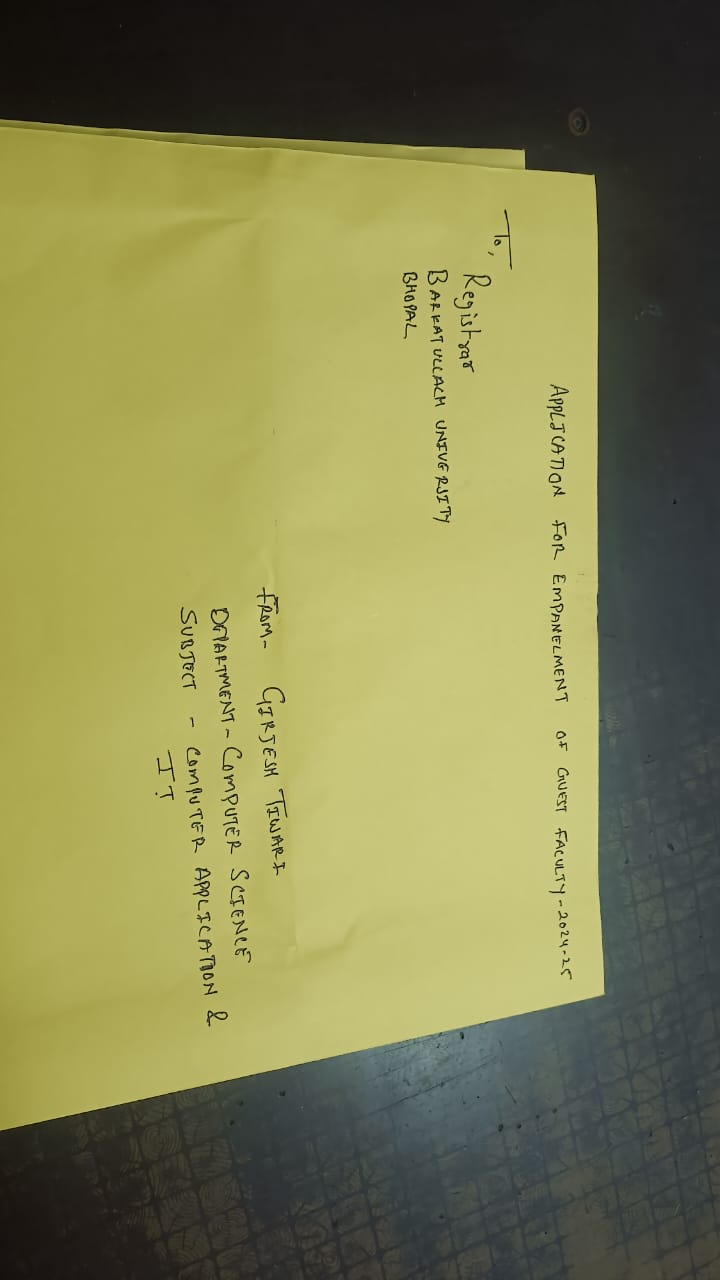 APPLICATION FOR EMPANELMENT OF GUEST FACULTY-2024-25
To,
Registrar
BARKATULLAH UNIVERSITY
BHOPAL
FROM- GIRJESH TIWARI
DEPARTMENT- COMPUTER SCIENCE
SUBJECT - COMPUTER APPLICATION &
IT